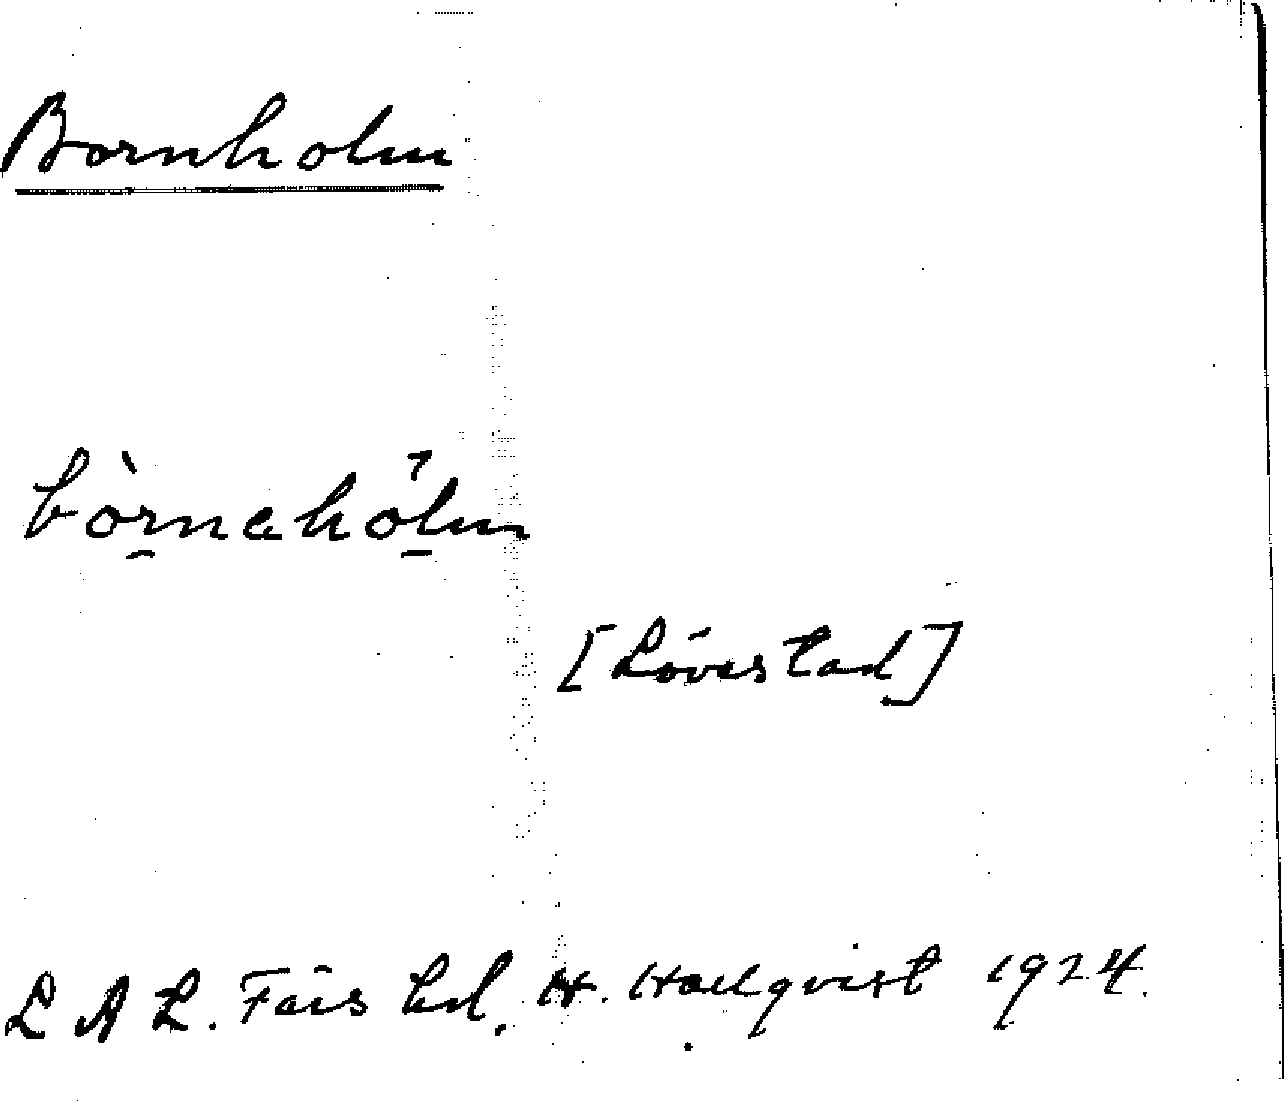 Bornholm
bòrnahól̄m
[Lövestad]
L A L. Färs hd. H. Hallqvist 1924.